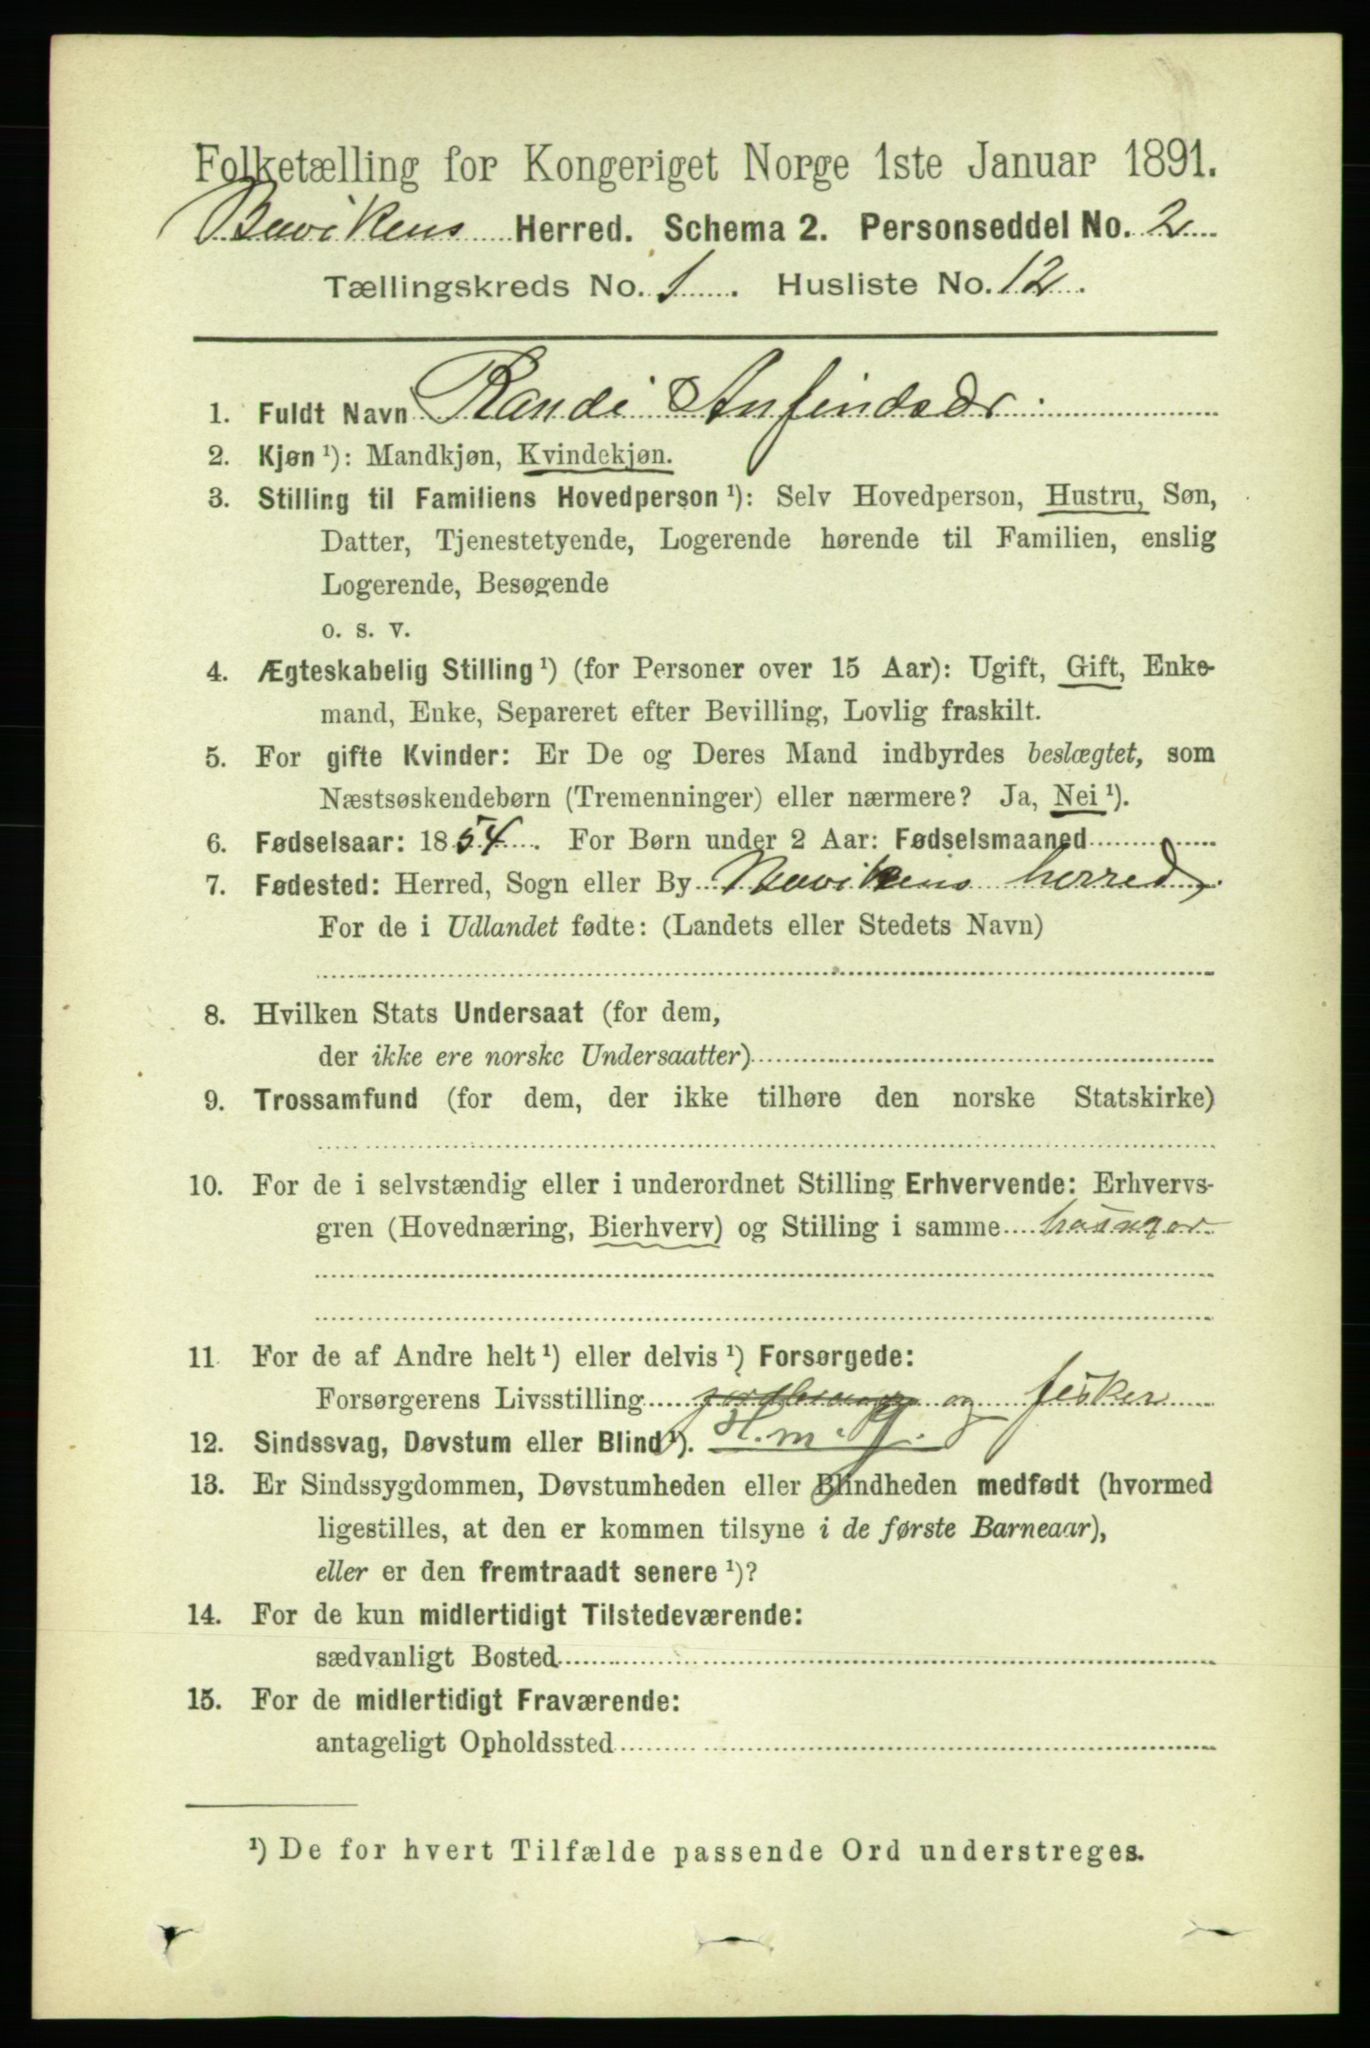 Folketælling for Kongeriget Norge 1ste Januar 1891.
Buvikens Herred. Schema 2. Personseddel No. 2
Tællingskreds No. 1. Husliste No. 12.
1. Fuldt Navn Randi Anfindsdr
2. Kjøn ¹): Mandkjøn, Kvindekjøn.
3. Stilling til Familiens Hovedperson ¹): Selv Hovedperson, Hustru, Søn,
Datter, Tjenestetyende, Logerende hørende til Familien, enslig
Logerende, Besøgende
o. s. v.
4. Ægteskabelig Stilling ¹) (for Personer over 15 Aar): Ugift, Gift, Enke-
mand, Enke, Separeret efter Bevilling, Lovlig fraskilt.
5. For gifte Kvinder: Er De og Deres Mand indbyrdes beslægtet, som
Næstsøskendebørn (Tremenninger) eller nærmere? Ja, Nei ¹).
6. Fødselsaar: 1854. For Børn under 2 Aar: Fødselsmaaned
7. Fødested: Herred, Sogn eller By Buvikens herred
For de i Udlandet fødte: (Landets eller Stedets Navn)
8. Hvilken Stats Undersaat (for dem,
der ikke ere norske Undersaatter)
9. Trossamfund (for dem, der ikke tilhøre den norske Statskirke)
10. For de i selvstændig eller i underordnet Stilling Erhvervende: Erhvervs-
gren (Hovednæring, Bierhverv) og Stilling i samme
11 For de af Andre helt ¹) eller delvis ¹) Forsørgede:
Forsørgerens Livsstilling og fisker
12. Sindssvag, Døvstum eller Blind ¹).
13. Er Sindssygdommen, Døvstumheden eller Blindheden medfødt (hvormed
ligestilles, at den er kommen tilsyne i de første Barneaar),
eller er den fremtraadt senere ¹)?
14. For de kun midlertidigt Tilstedeværende:
sædvanligt Bosted
15. For de midlertidigt Fraværende:
antageligt Opholdssted
¹) De for hvert Tilfælde passende Ord understreges.